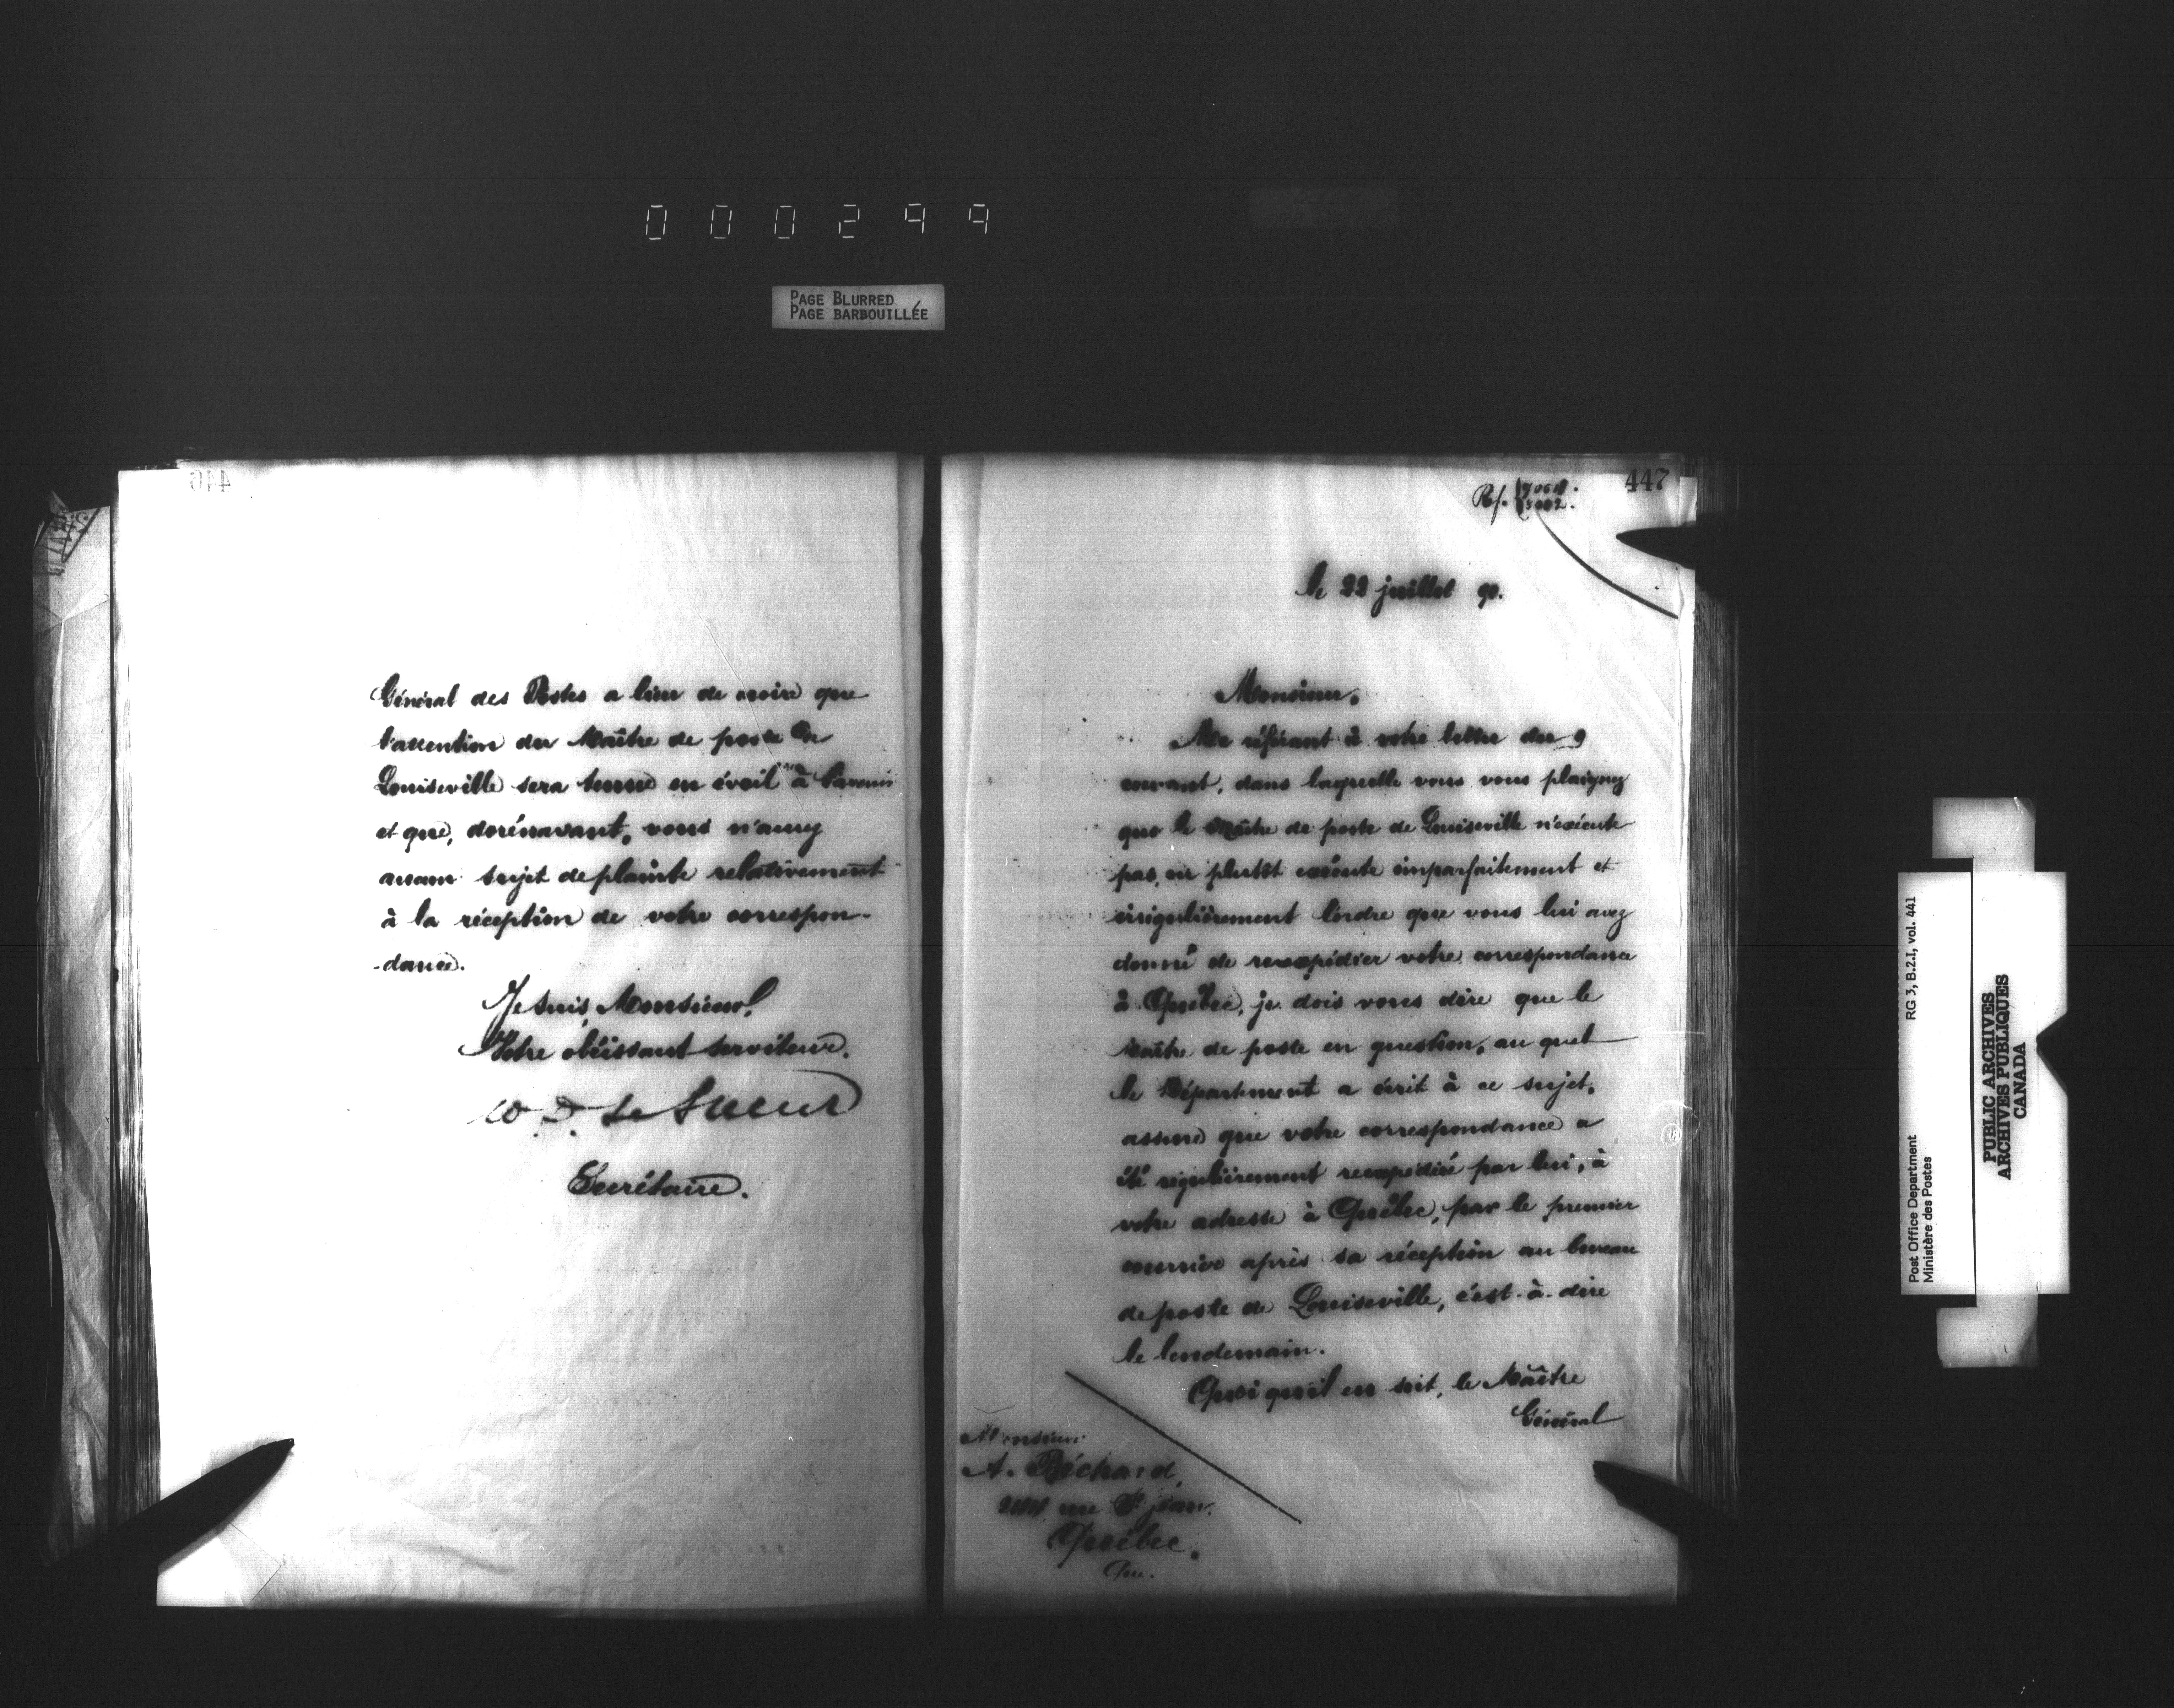 000299
PAGE BLURRED
PAGE BARBOUILLÉE
446
Général des Postes a lieu de croire que
l'attention du Maître de poste de
Louiseville sera tenue en éveil à l'avenir
et que, dorénavant, vous n'aurez
aucun sujet de plainte relativement
à la réception de votre correspon-
-dance.
Je suis, Monsieur,
Votre obéissant serviteur.
W. D. Le Sueur
Secrétaire.
447
Ref.
le 22 juillet 90.
Monsieur,
Me référant à votre lettre du 9
courant, dans laquelle vous vous plaignez
que le Maître de poste de Louiseville n'exécute
pas, ou plutôt exécute imparfaitement et
irrégulièrement l'ordre que vous lui avez
donné de réexpédier votre correspondance
à Québec, je dois vous dire que le
Maître de poste en question, au quel
le Département a écrit à ce sujet,
assure que votre correspondance a
été régulièrement réexpédiée par lui, à
votre adresse à Québec, par le premier
courrier après sa réception au bureau
de poste de Louiseville, c'est-à-dire
le lendemain.
Quoi qu'il en soit, le Maître
Général
Monsieur
A. Béchard,
rue St Jean.
Québec.
Que.
Post Office Department
Ministère des Postes
RG 3, B.2.I, vol. 441
PUBLIC ARCHIVES
ARCHIVES PUBLIQUES
CANADA